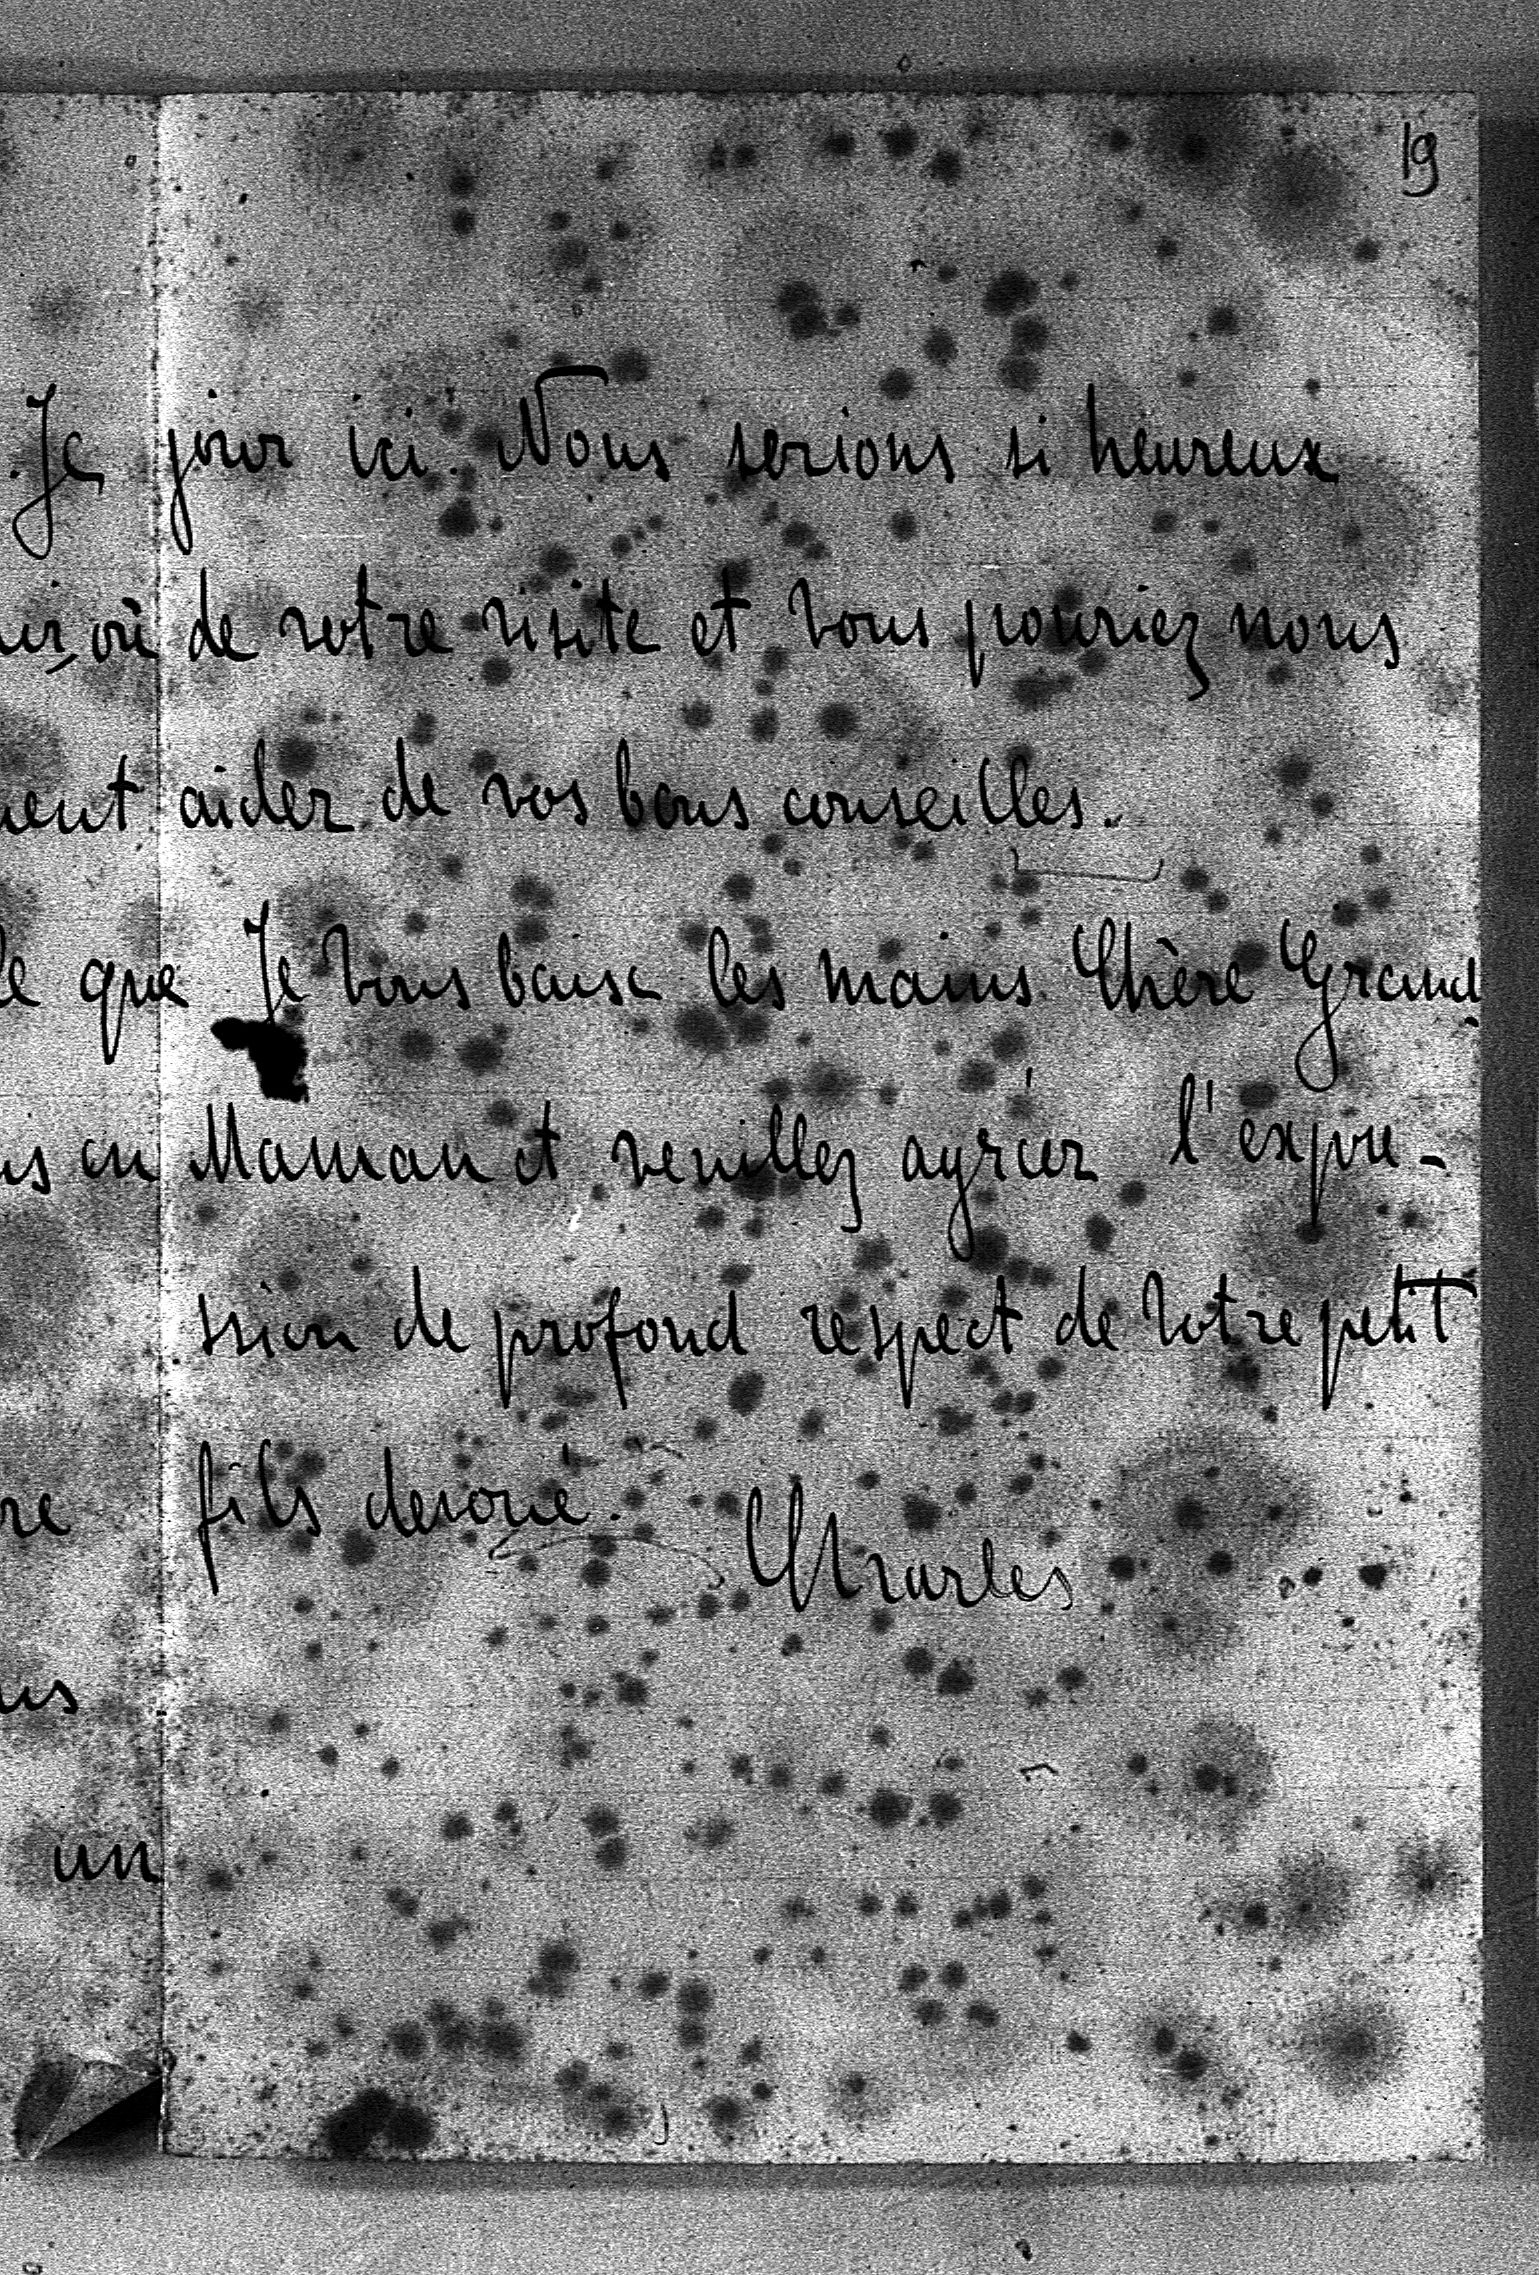 19
jour ici. Nous serions si heureux
de votre visite et vous pouriez nous
aider de vos bons conseilles.
Je vous baise les mains Chère Grand
Maman et veuillez agréer l'expre-
ssion de profond respect de Votre petit
fils devoué.
Charles
. Je
où
ment
le que
en
un